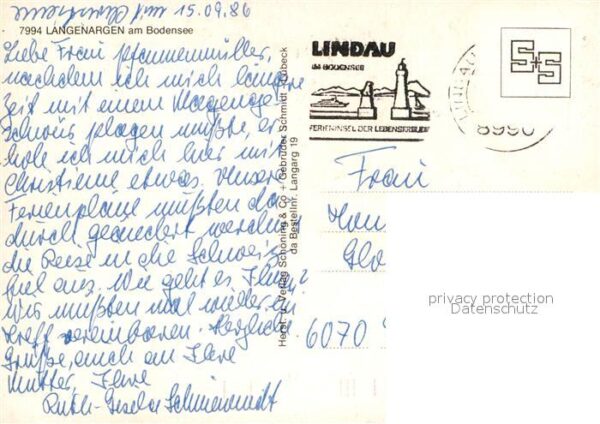 15.09.86
7994 LANGENARGEN am Bodensee
Liebe Frau Pfannenmüller,
nachdem ich mich längere
Zeit mit einem Magenge-
schwür plagen mußte, er-
hole ich mich hier mit
Christiane etwas. Unsere
Ferienpläne mußten da-
durch geändert werden
die Reise in die Schweiz
fiel aus. Wie geht es Ihnen?
Wir müßten mal wieder ein
Treff vereinbaren. Herzliche
Grüße, auch an Ihre
Mutter, Ihre
Ruth-Gisela
Herst. u. Verlag Schöning & Co + Gebrüder Schmidt, Lübeck
da Bestellnr. Langarg 19
LINDAU
IM BODENSEE
FERIENINSEL DER LEBENSFREUDE
8990
S+S
Frau
6070
privacy protection
Datenschutz